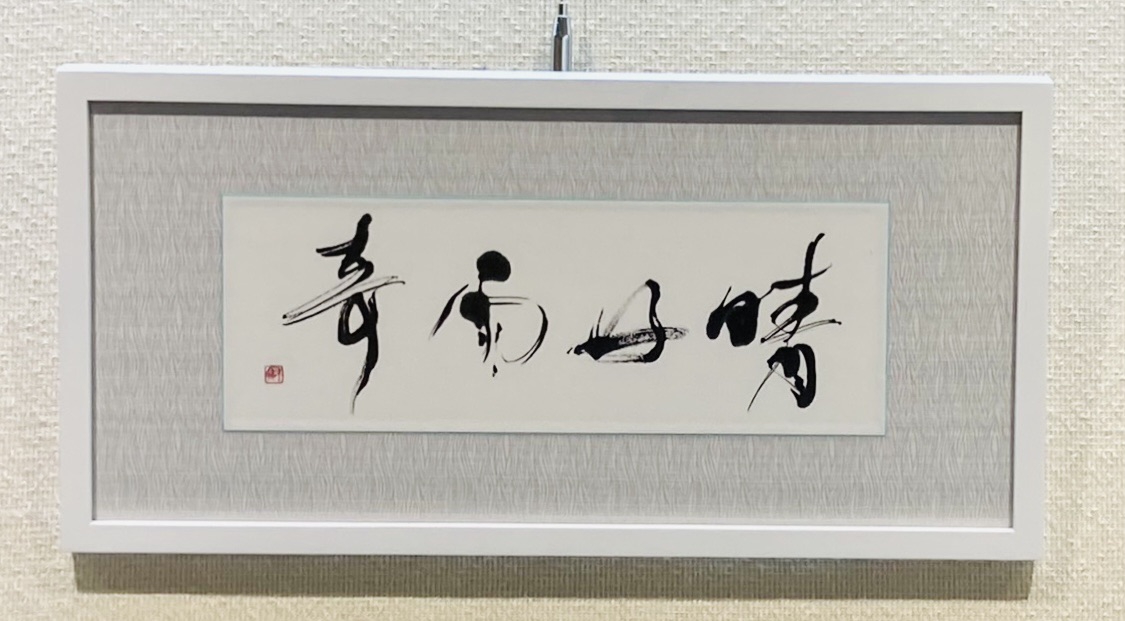 晴好雨奇